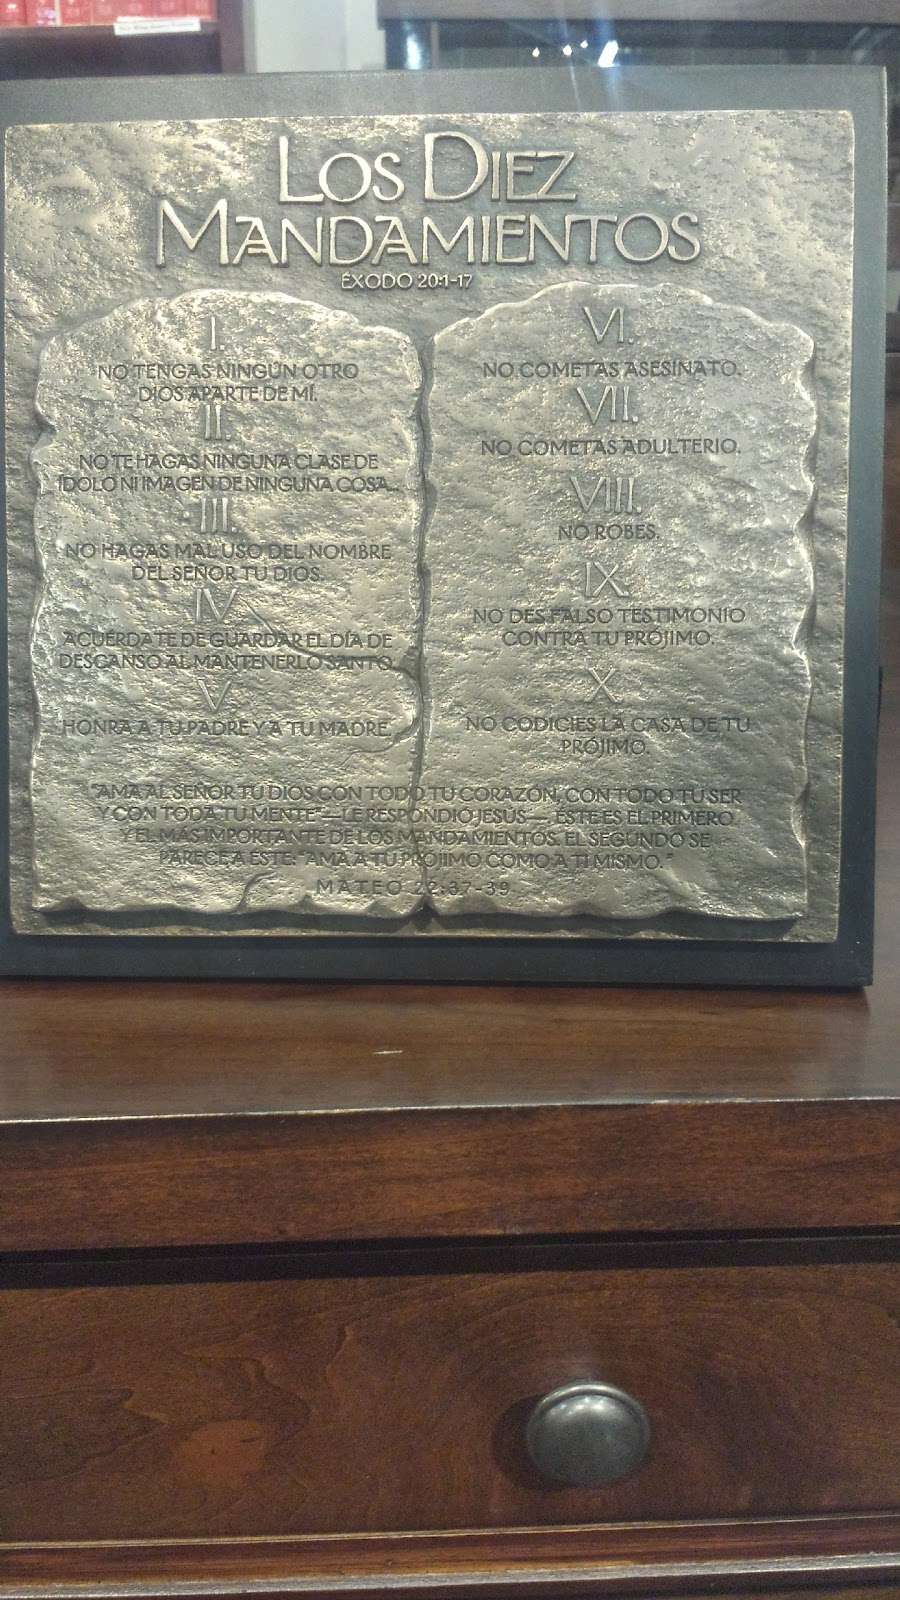 LOS DIEZ
MANDAMIENTOS
ÉXODO 20:1-17
I.
NO TENGAS NINGÚN OTRO
DIOS APARTE DE MÍ.
II.
NO TE HAGAS NINGUNA CLASE DE
ÍDOLO NI IMAGEN DE NINGUNA COSA...
III.
NO HAGAS MAL USO DEL NOMBRE
DEL SEÑOR TU DIOS.
IV
ACUÉRDATE DE GUARDAR EL DÍA DE
DESCANSO AL MANTENERLO SANTO.
V
HONRA A TU PADRE Y A TU MADRE.
VI.
NO COMETAS ASESINATO.
VII.
NO COMETAS ADULTERIO.
VIII.
NO ROBES.
IX
NO DES FALSO TESTIMONIO
CONTRA TU PRÓJIMO.
X
NO CODICIES LA CASA DE TU
PRÓJIMO.
"AMA AL SEÑOR TU DIOS CON TODO TU CORAZÓN, CON TODO TU SER
Y CON TODA TU MENTE"—LE RESPONDIÓ JESÚS—. ÉSTE ES EL PRIMERO
Y EL MÁS IMPORTANTE DE LOS MANDAMIENTOS. EL SEGUNDO SE
PARECE A ÉSTE: "AMA A TU PRÓJIMO COMO A TI MISMO."
MATEO 22:37-39